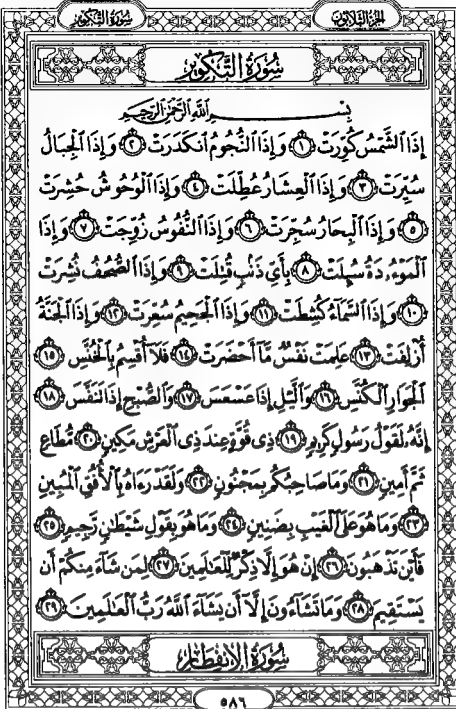 سُورَةُ التَّكْوِيرِ
الجُزْءُ الثَّلَاثُونَ
سُورَةُ التَّكْوِيرِ
بِسْمِ اللَّهِ الرَّحْمَٰنِ الرَّحِيمِ
إِذَا ٱلشَّمْسُ كُوِّرَتْ ١ وَإِذَا ٱلنُّجُومُ ٱنكَدَرَتْ ٢ وَإِذَا ٱلْجِبَالُ
سُيِّرَتْ ٣ وَإِذَا ٱلْعِشَارُ عُطِّلَتْ ٤ وَإِذَا ٱلْوُحُوشُ حُشِرَتْ
٥ وَإِذَا ٱلْبِحَارُ سُجِّرَتْ ٦ وَإِذَا ٱلنُّفُوسُ زُوِّجَتْ ٧ وَإِذَا
ٱلْمَوْءُۥدَةُ سُئِلَتْ ٨ بِأَىِّ ذَنۢبٍ قُتِلَتْ ٩ وَإِذَا ٱلصُّحُفُ نُشِرَتْ
١٠ وَإِذَا ٱلسَّمَآءُ كُشِطَتْ ١١ وَإِذَا ٱلْجَحِيمُ سُعِّرَتْ ١٢ وَإِذَا ٱلْجَنَّةُ
أُزْلِفَتْ ١٣ عَلِمَتْ نَفْسٌ مَّآ أَحْضَرَتْ ١٤ فَلَآ أُقْسِمُ بِٱلْخُنَّسِ ١٥
ٱلْجَوَارِ ٱلْكُنَّسِ ١٦ وَٱلَّيْلِ إِذَا عَسْعَسَ ١٧ وَٱلصُّبْحِ إِذَا تَنَفَّسَ ١٨
إِنَّهُۥ لَقَوْلُ رَسُولٍ كَرِيمٍ ١٩ ذِى قُوَّةٍ عِندَ ذِى ٱلْعَرْشِ مَكِينٍ ٢٠ مُّطَاعٍ
ثَمَّ أَمِينٍ ٢١ وَمَا صَاحِبُكُم بِمَجْنُونٍ ٢٢ وَلَقَدْ رَءَاهُ بِٱلْأُفُقِ ٱلْمُبِينِ
٢٣ وَمَا هُوَ عَلَى ٱلْغَيْبِ بِضَنِينٍ ٢٤ وَمَا هُوَ بِقَوْلِ شَيْطَٰنٍ رَّجِيمٍ ٢٥
فَأَيْنَ تَذْهَبُونَ ٢٦ إِنْ هُوَ إِلَّا ذِكْرٌ لِّلْعَٰلَمِينَ ٢٧ لِمَن شَآءَ مِنكُمْ أَن
يَسْتَقِيمَ ٢٨ وَمَا تَشَآءُونَ إِلَّآ أَن يَشَآءَ ٱللَّهُ رَبُّ ٱلْعَٰلَمِينَ ٢٩
سُورَةُ الانفِطَارِ
٥٨٦